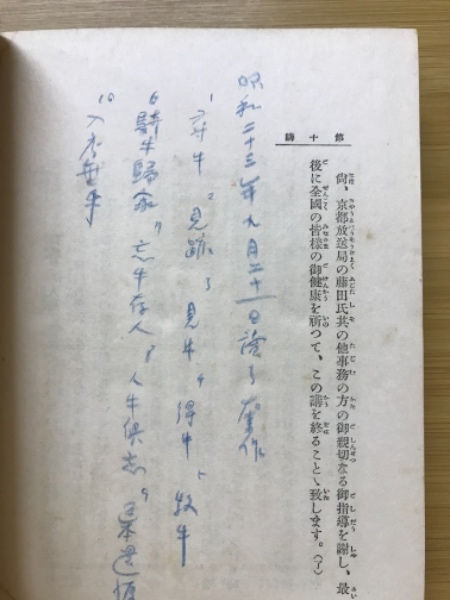 第十講
尚、京都放送局の藤田氏其の他事務の方の御親切なる御指導を謝し、最
後に全國の皆樣の御健康を祈つて、この講を終ることゝ致します。(了)
昭和二十三年九月二十一日讀了
1 尋牛 2 見跡 3 見牛 4 得牛 5 牧牛
6 騎牛歸家 7 忘牛存人 8 人牛俱忘 9 返本還源
10 入鄽垂手